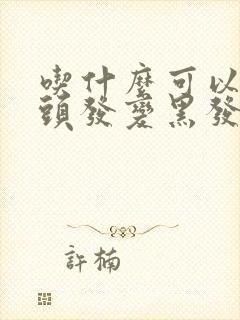 喫什麼可以
頭發變黑發
許楠